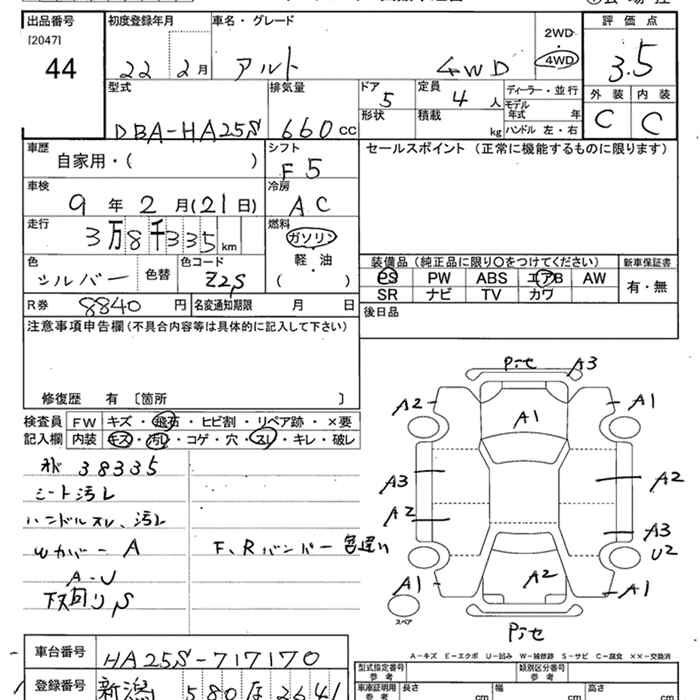 出品番号
[2047]
44
初度登録年月
22 2月
車名・グレード
アルト 4WD
2WD
・
4WD
評価点
3.5
外装 内装
C C
型式
DBA-HA25S
排気量
660cc
ドア
5
形状
定員
4人
積載
kg
ディーラー・並行
モデル
年式 年
ハンドル 左・右
車歴
自家用・( )
シフト
F5
セールスポイント (正常に機能するものに限ります)
車検
9年2月(21日)
冷房
AC
走行
3万8千335km
燃料
ガソリン
軽・油
( )
色
シルバー
色替
色コード
Z2S
装備品 (純正品に限り○をつけてください)
PS PW ABS エアB AW
SR ナビ TV カワ
新車保証書
有・無
R券 8840円
名変通知期限 月 日
後日品
注意事項申告欄(不具合内容等は具体的に記入して下さい)
修復歴 有 〔箇所 〕
検査員
記入欄
FW キズ・飛石・ヒビ割・リペア跡・×要
内装 キズ・汚レ・コゲ・穴・スレ・キレ・破レ
メモ 38335
シート汚レ
ハンドルスレ、汚レ
Wカバー A
A-U
下回りS
F、Rバンパー色違い
Pキセ
A3
A2
A1
A1
A3
A2
A2
A3
U2
A1
A2
A1
スペア
Pキセ
A-キズ E-エクボ U-凹み W-補修跡 S-サビ C-腐食 ××-交換済
車台番号
HA25S-717170
登録番号
新潟 580 ほ 2641
型式指定番号
参考
類別区分番号
参考
車庫証明用
参考
長さ
cm
幅
cm
高さ
cm